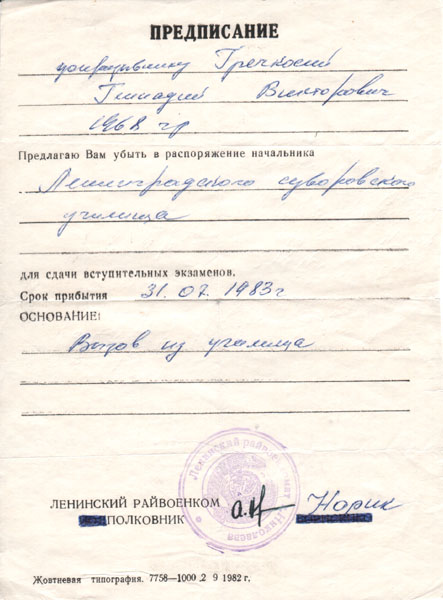 ПРЕДПИСАНИЕ
Гречкосий
Геннадий Викторович
1968 гр
Предлагаю Вам убыть в распоряжение начальника
Ленинградского суворовского
училища
для сдачи вступительных экзаменов.
Срок прибытия 31.07.1983г
ОСНОВАНИЕ:
Вызов из училища
Ленинский райвоенкомат
Николаева
ЛЕНИНСКИЙ РАЙВОЕНКОМ
ПОЛКОВНИК Норик
Жовтневая типография. 7758—1000 2 9 1982 г.